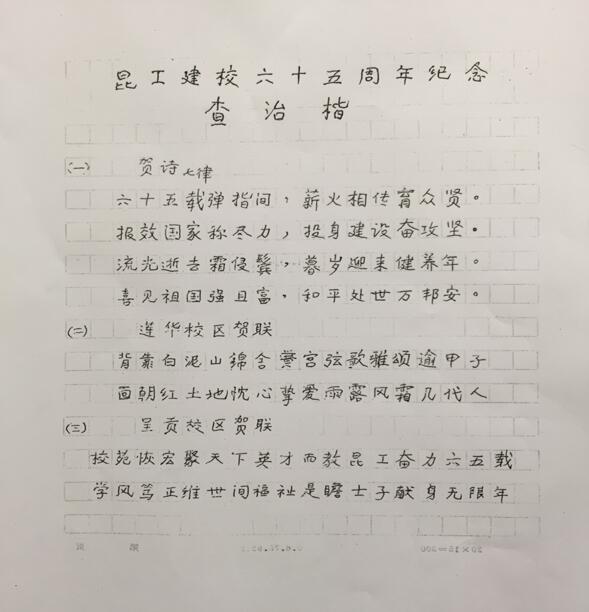 昆工建校六十五周年纪念
查治楷
(一) 贺诗 七律
六十五载弹指间，薪火相传育众贤。
报效国家称尽力，投身建设奋攻坚。
流光逝去霜侵鬓，暮岁迎来健养年。
喜见祖国强且富，和平处世万邦安。
(二) 莲华校区贺联
背靠白泥山绵含黉宫弦歌雅颂逾甲子
面朝红土地忱心挚爱雨露风霜几代人
(三) 呈贡校区贺联
校苑恢宏聚天下英才而教昆工奋力六五载
学风笃正维世间福祉是瞻士子献身无限年
20×15=300